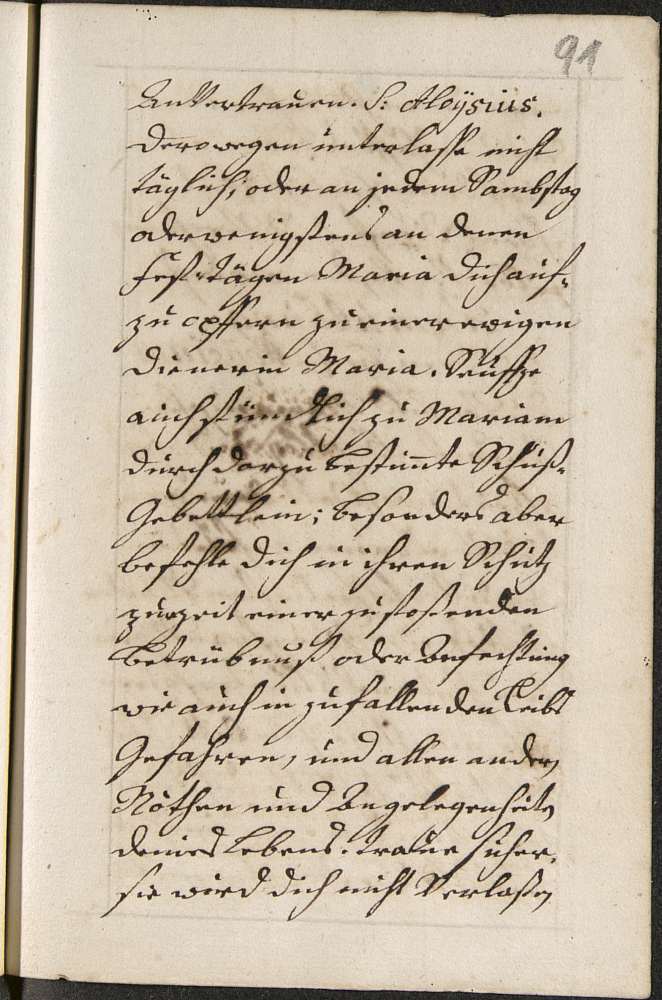 91
Anvertrauen. S: Aloÿsius.
derowegen unterlasse nicht
täglich, oder an jedem Sambstag
oder wenigstens an denen
fest-tägen Maria dich auf-
zu opffern zu einer ewigen
dienerin Maria. Seuffze
auch stündlich zu Mariam
durch darzu bestimte Schuß-
Gebettlein; besonders aber
befehle dich in ihren Schutz
zur zeit einer zustossenden
betrübnuß oder Anfechtung
wie auch in zufallenden Leibs
Gefahren, und allen andern
Nöthen und Angelegenheiten
deines Lebens. traue sicher,
sie wird dich nicht Verlassen